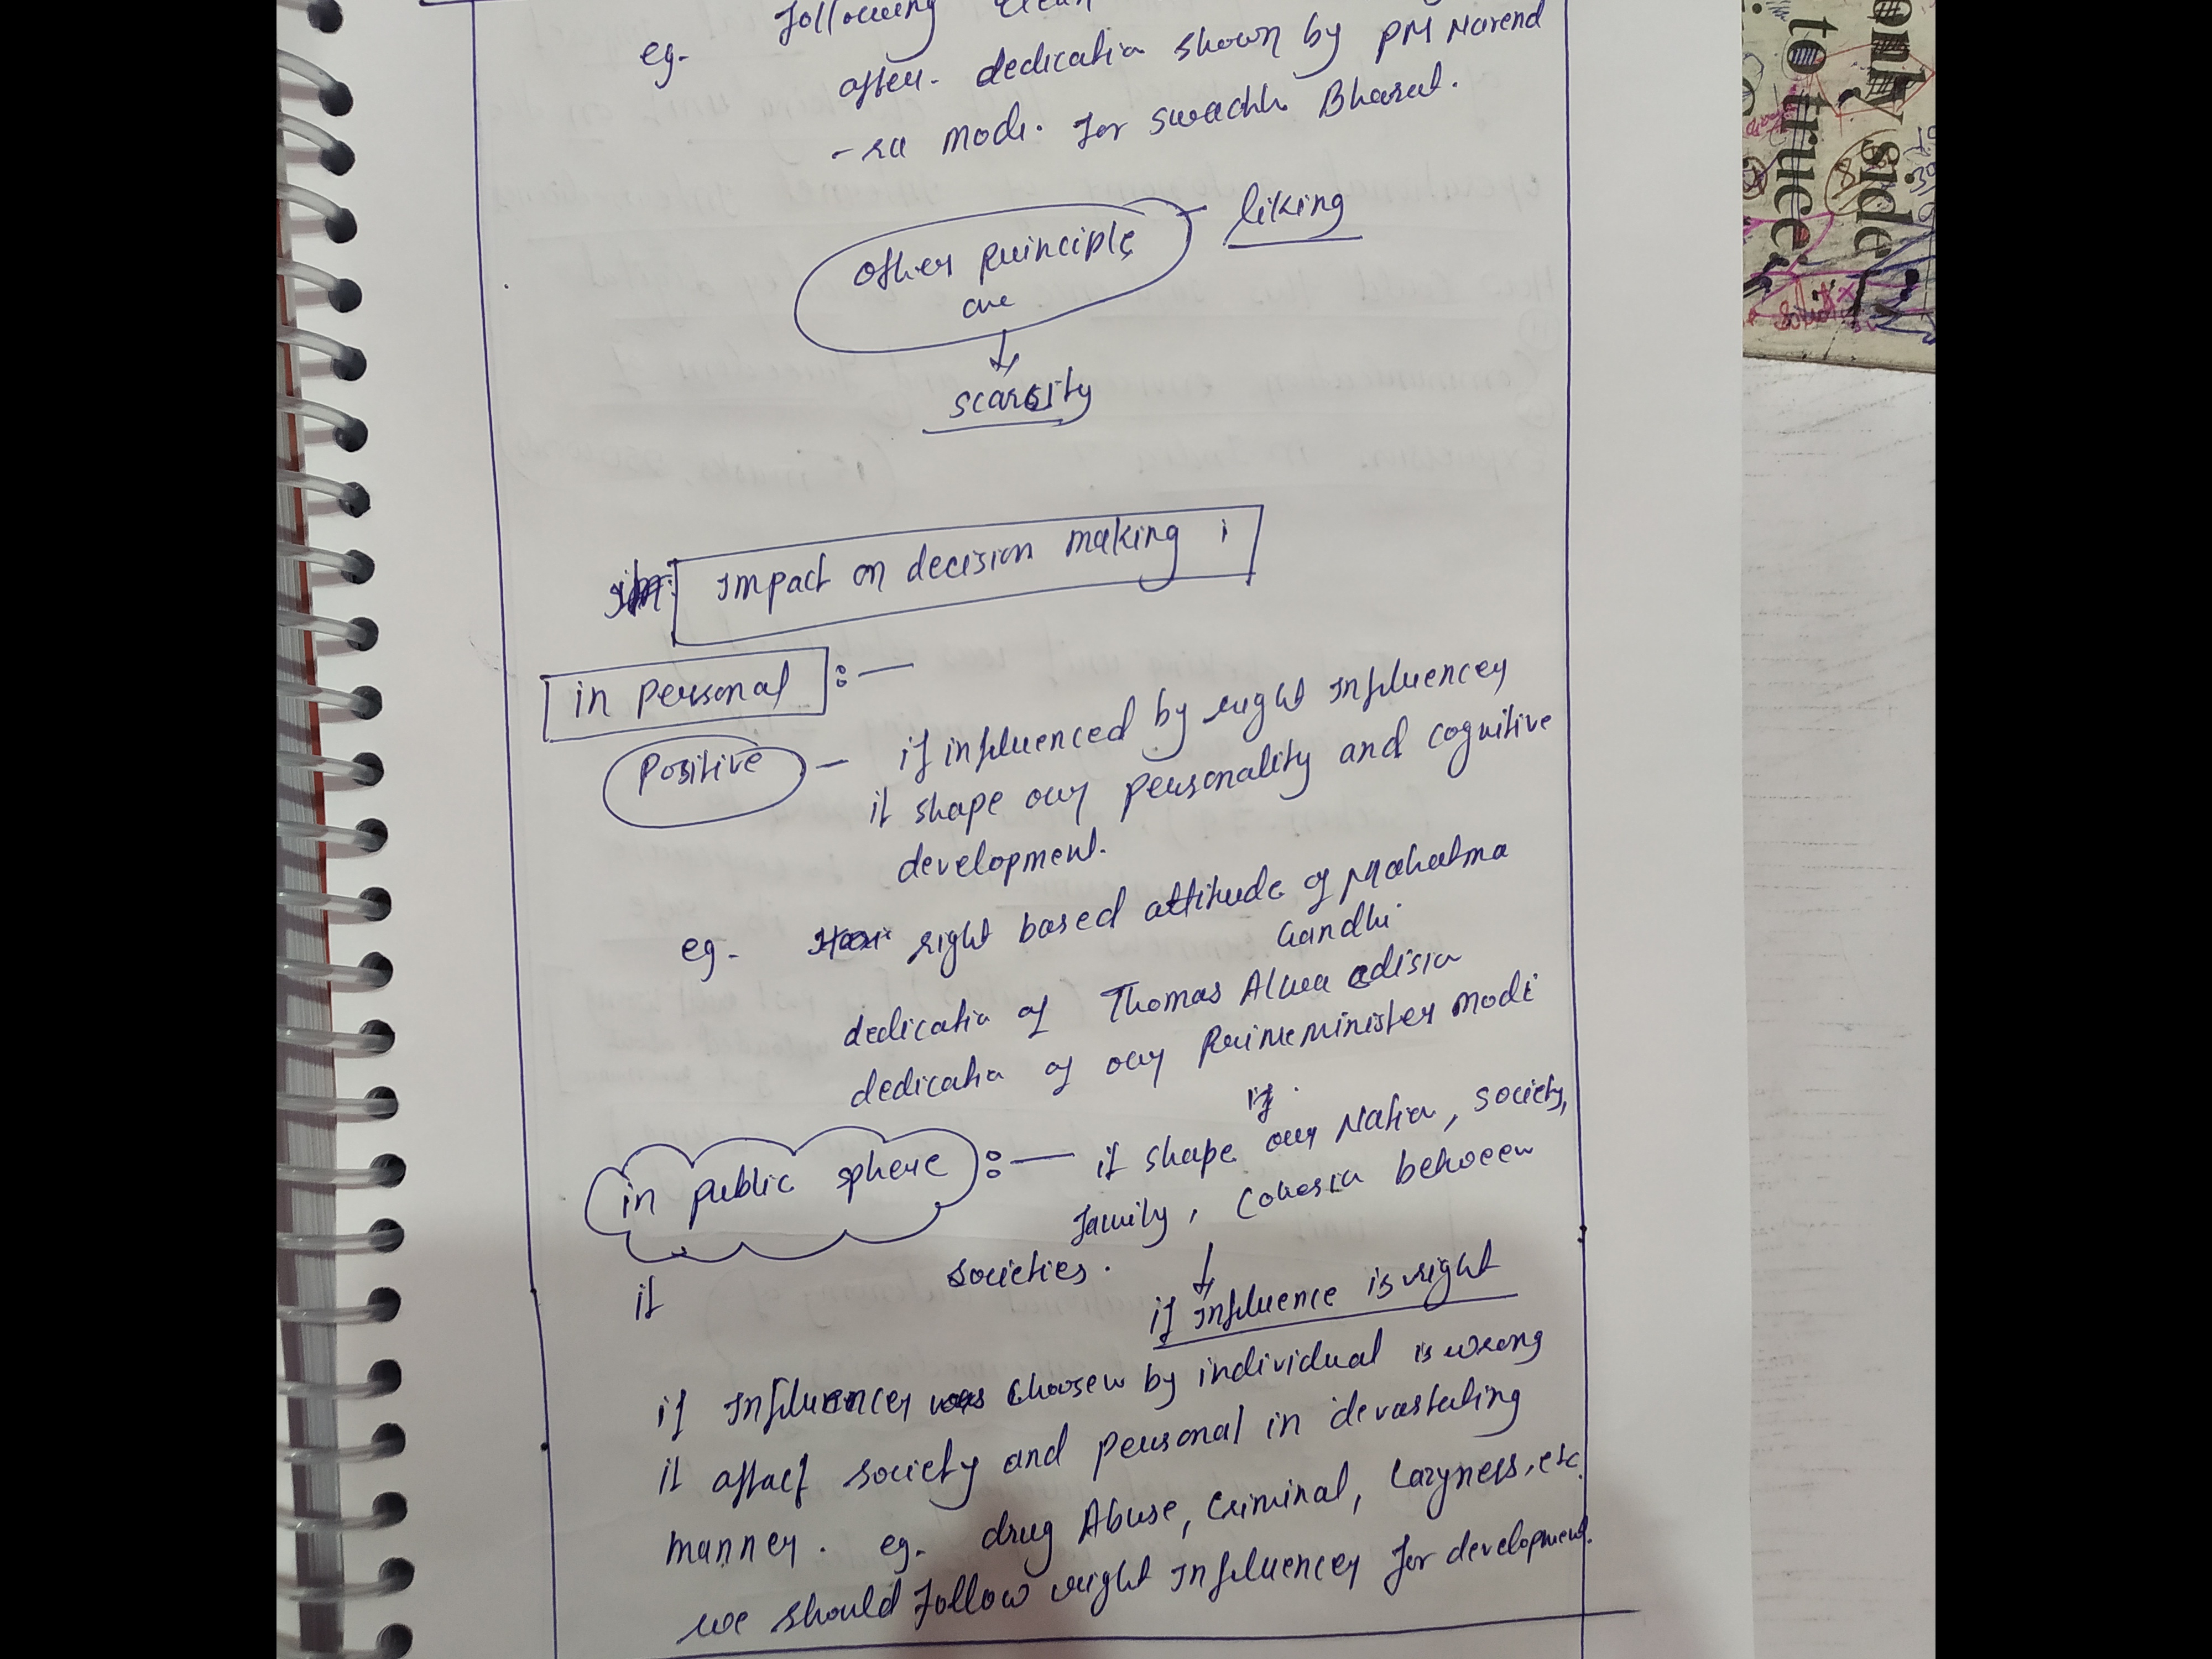 eg. following clean
after dedication shown by PM Narend
-ra Modi. for swachh Bharat.
other principle - liking
are
scarcity
Impact on decision making :
in personal :-
Positive - if influenced by right influencer
it shape our personality and cognitive
development.
eg. right based attitude of Mahatma
Gandhi
dedication of Thomas Alwa edision
dedication of our Prime minister Modi
if
in public sphere :- it shape our Nation, society,
family, Cohesion between
societies.
it
if influence is right
if influencer choosen by individual is wrong
it affact society and personal in devastating
manner. eg. drug Abuse, Criminal, Lazyness, etc.
we should follow right influencer for development.
only side
to true